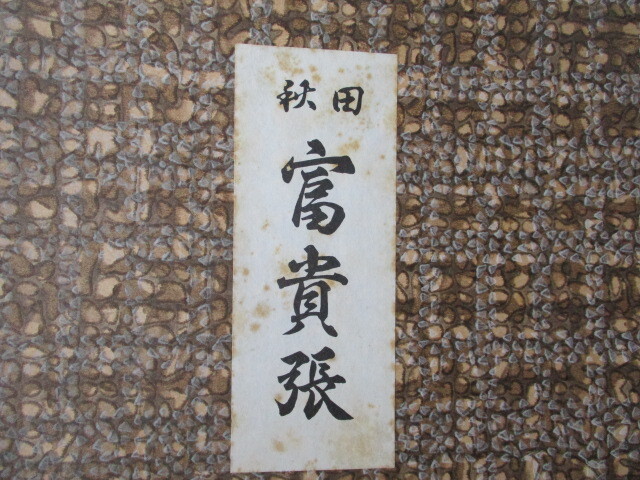 秋田
富貴張